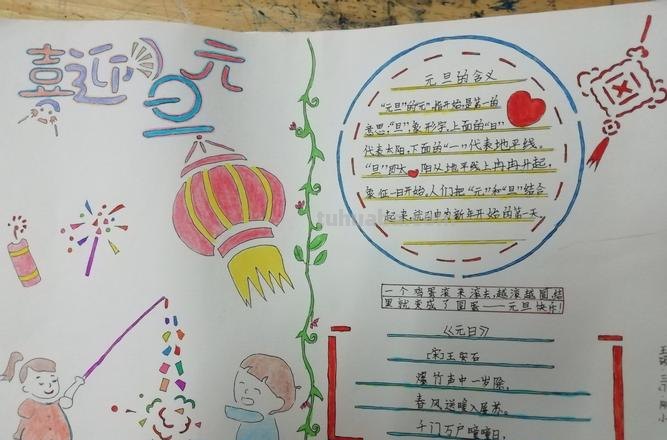 喜迎元旦
元旦的含义
"元旦"的"元",指开始,是第一的
意思,"旦",象形字,上面的"日"
代表太阳,下面的"一"代表地平线。
"旦"即太阳从地平线上冉冉升起,
象征一日开始,人们把"元"和"旦"结合
起来,就引申为新年开始的第一天。
一个鸡蛋滚来滚去,越滚越圆,结
果就变成了圆蛋——元旦快乐!
《元日》
[宋]王安石
爆竹声中一岁除,
春风送暖入屠苏。
千门万户曈曈日,